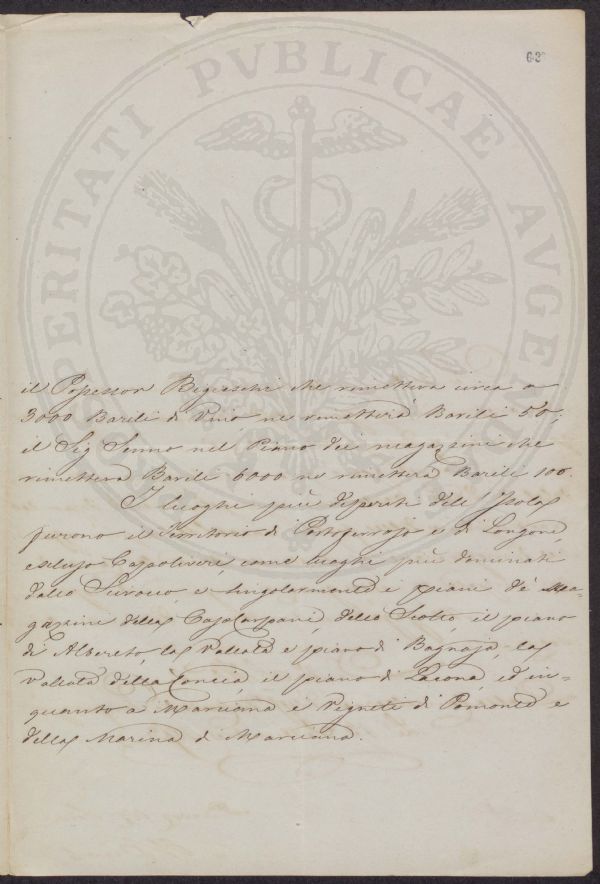 PROSPERITATI PVBLICAE AVGENDAE
63
il Possessor Bigeschi che rimetteva circa a
3000 Barili di Vino ne rimetterà Barili 50;
il Sig Senno nel Piano dei magazzini che
rimetteva Barili 6000 ne rimetterà Barili 100.
I luoghi più disperati dell' Isola
furono il Territorio di Portoferrajo e di Longone
escluso Capoliveri, come luoghi più dominati
dallo Scirocco, e singolarmente i piani de' Ma=
gazzini della Casa Carpani, dello Scotto, il piano
di Albereto, la Vallata e piano di Bagnaja, la
Vallata della Concia il piano di Lacona, ed in=
quanto a Marciana i Vigneti di Pomonte e
della Marina di Marciana.